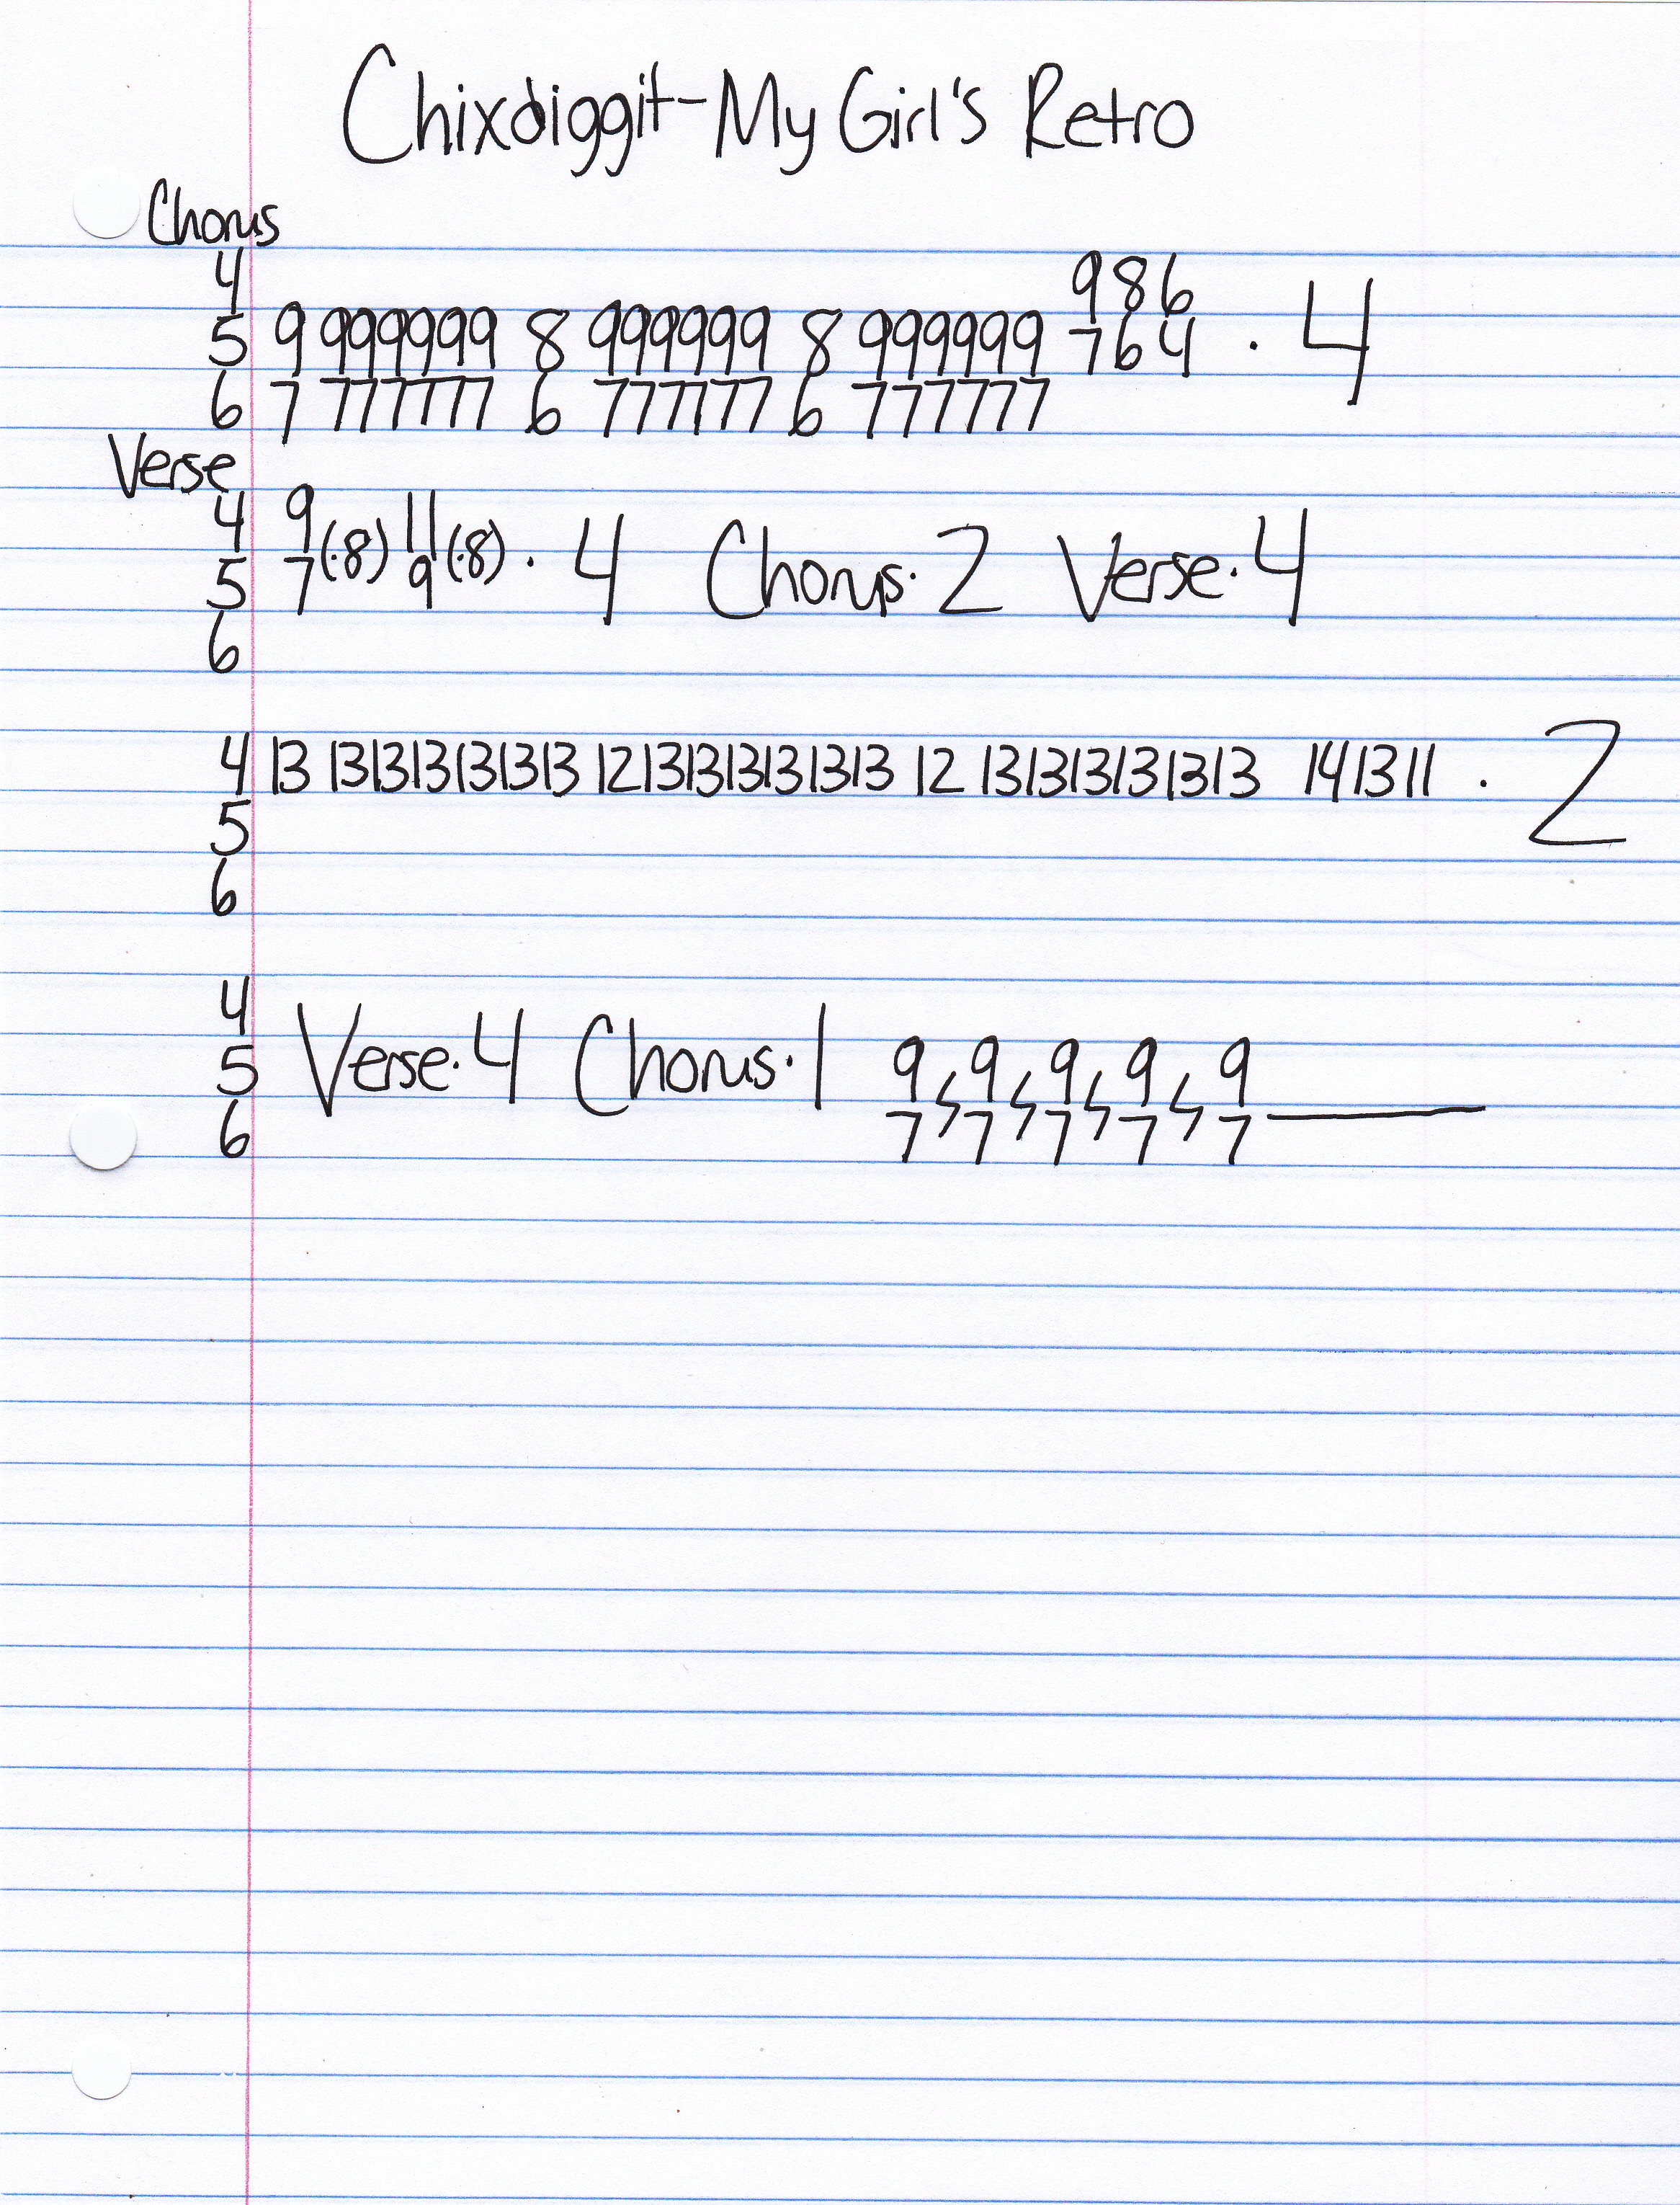 Chixdiggit-My Girl's Retro
Chorus
4 986
5 9 999999 8 999999 8 999999 764 · 4
6 7 777777 6 777777 6 777777
Verse
4 9 11
5 7(·8) 9(·8) · 4 Chorus·2 Verse·4
6
4 13 131313131313 12131313131313 12 131313131313 141311 · 2
5
6
4
5 Verse·4 Chorus·1 9 9 9 9 9
6 7 7 7 7 7